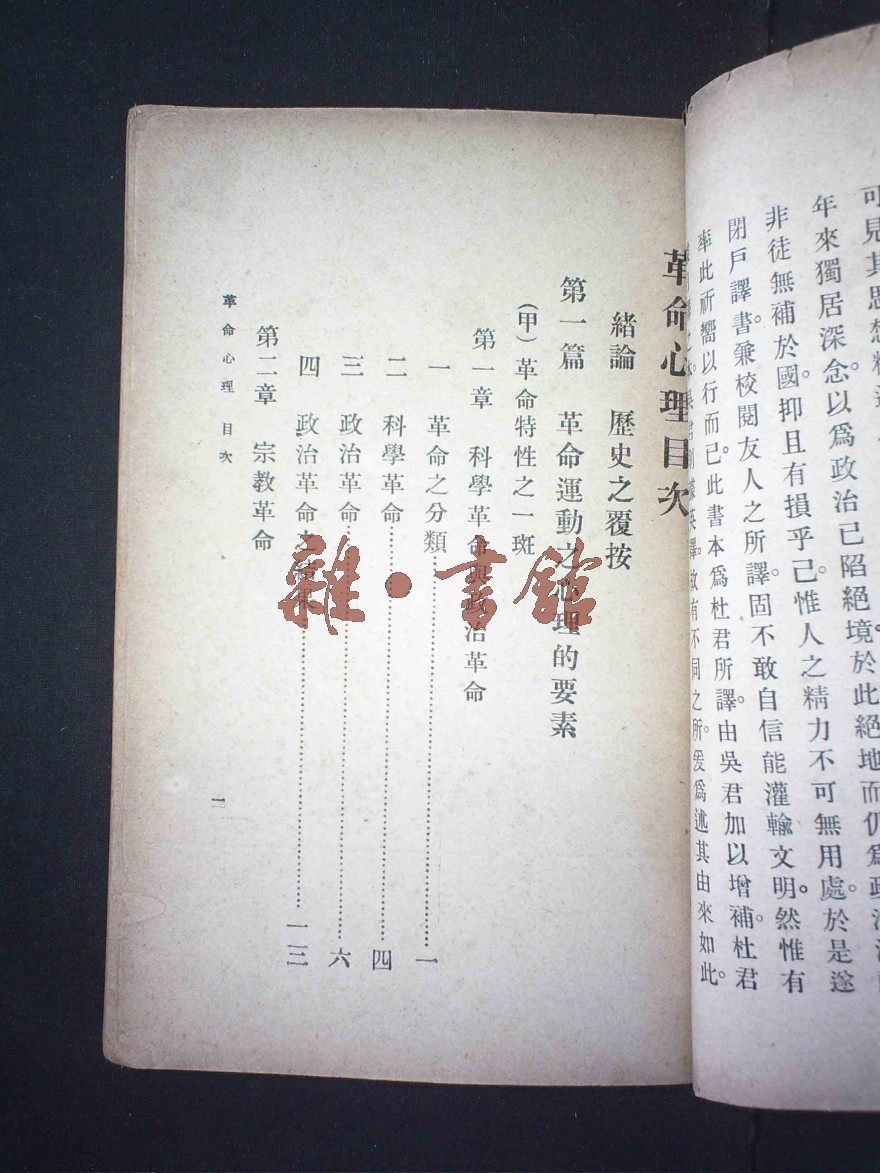 可見其思想精
年來獨居深念。以爲政治已陷絕境。於此絕地而仍爲政治
非徒無補於國。抑且有損乎己。惟人之精力不可無用處。於是遂
閉戶譯書。兼校閱友人之所譯。固不敢自信能灌輸文明。然惟有
率此祈嚮以行而已。此書本爲杜君所譯。由吳君加以增補。杜君
英譯。故有不同之所。爰爲述其由來如此。
革命心理目次
緒論 歷史之覆按
第一篇 革命運動之心理的要素
(甲)革命特性之一斑
第一章 科學革命與政治革命
一 革命之分類 一
二 科學革命 四
三 政治革命 六
四 政治革命之結果 一三
第二章 宗教革命
革命心理 目次
一
雜·書館